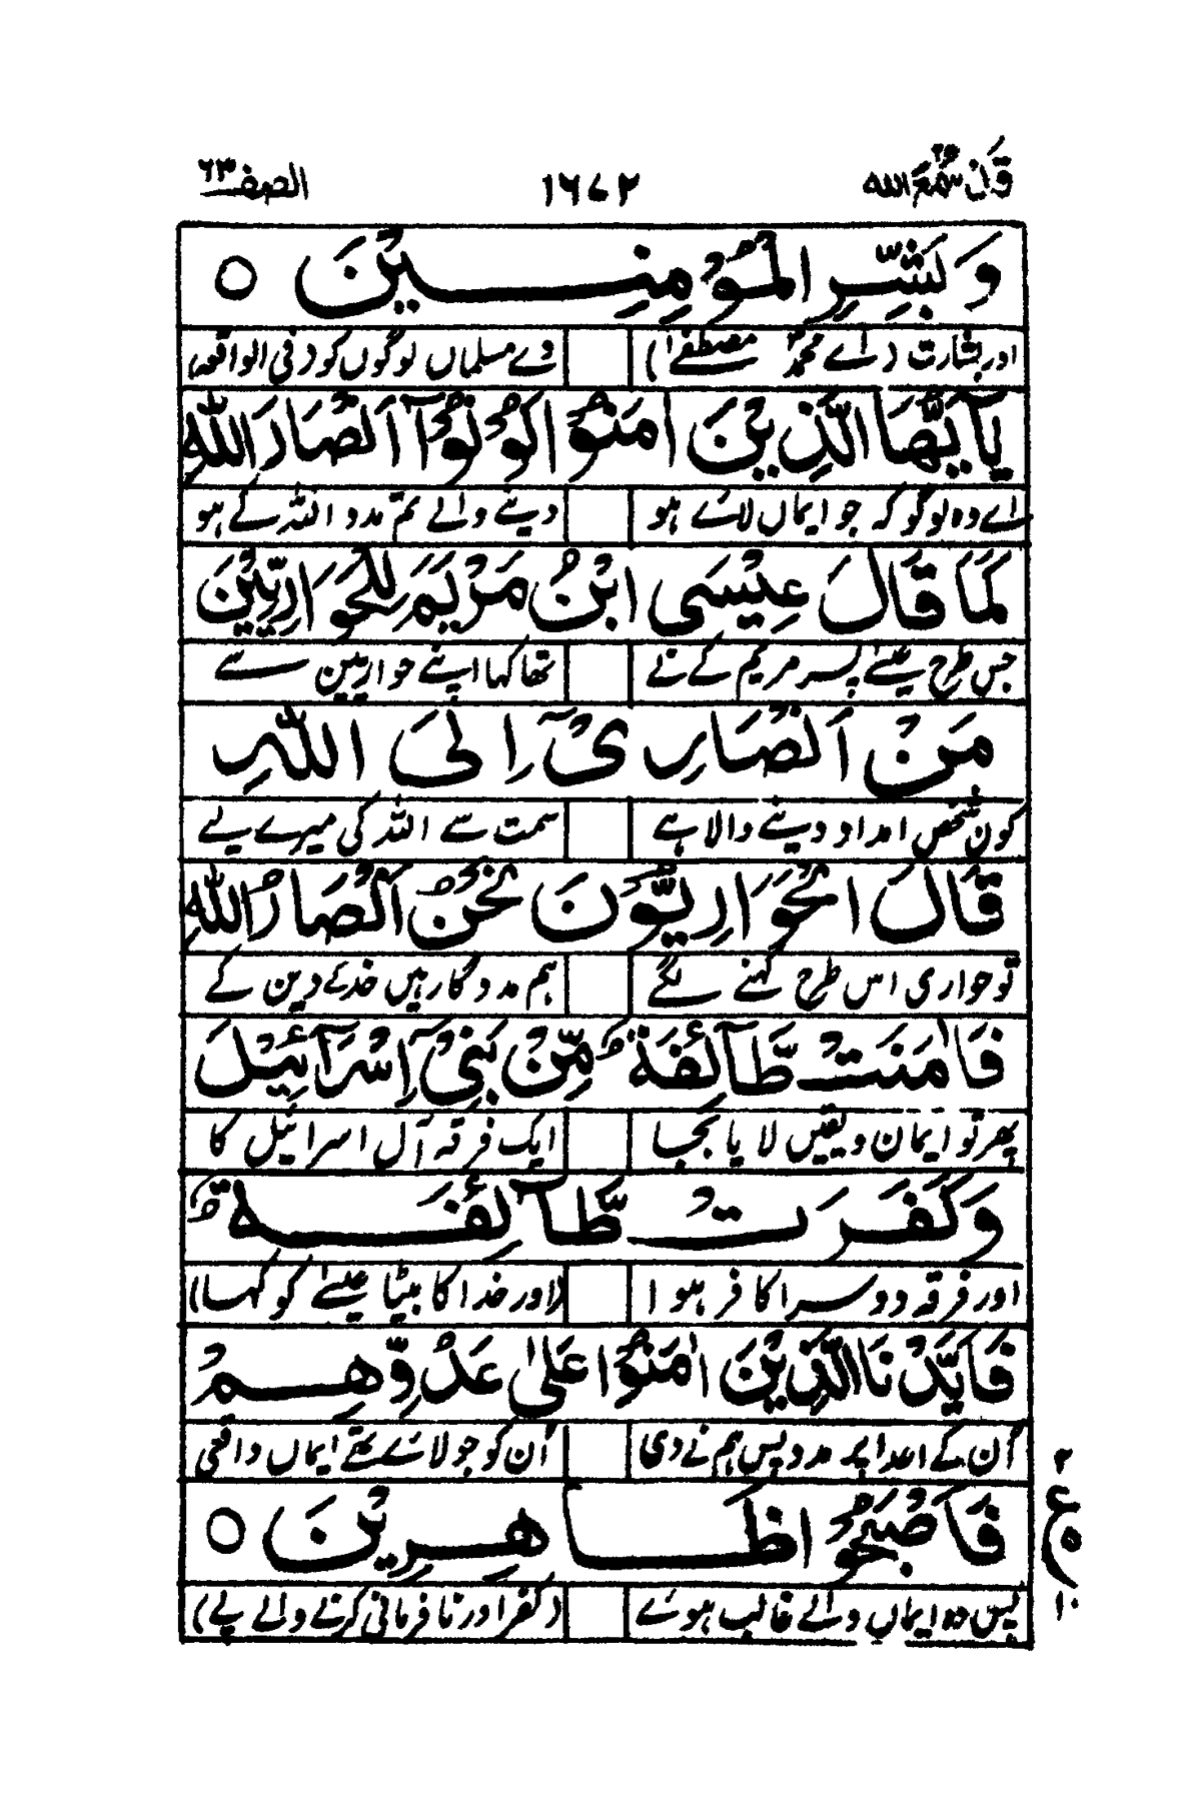 قد سمع الله ۲۸ ۱۶۷۲ الصف ۶۳
وَبَشِّرِ الْمُؤْمِنِيْنَ ○
اور بشارت (اے محمدؐ مصطفےٰ) دے مسلماں لوگوں کو (فی الواقعہ)
يٰٓاَيُّهَا الَّذِيْنَ اٰمَنُوْا كُوْنُوْٓا اَنْصَارَ اللّٰهِ
اے وہ لوگو کہ جو ایماں لائے ہو دینے والے تم مدد اللہ کے ہو
كَمَا قَالَ عِيْسَى ابْنُ مَرْيَمَ لِلْحَوَارِيّٖنَ
جس طرح عیسےٰ پسر مریم کے نے تھا کہا اپنے حواریین سے
مَنْ اَنْصَارِيْٓ اِلَى اللّٰهِ
کون شخص امداد دینے والا ہے سمت سے اللہ کی میرے لیے
قَالَ الْحَوَارِيُّوْنَ نَحْنُ اَنْصَارُ اللّٰهِ
تو حواری اس طرح کہنے لگے ہم مددگار ہیں خدائے دین کے
فَاٰمَنَتْ طَّآئِفَةٌ مِّنْۢ بَنِيْٓ اِسْرَآئِيْلَ
پھر تو ایمان و یقیں لایا بجب ایک فرقہ آل اسرائیل کا
وَكَفَرَتْ طَّآئِفَةٌ ۚ
اور فرقہ دوسرا کافر ہوا (اور خدا کا بیٹا عیسےٰ کو کہا)
فَاَيَّدْنَا الَّذِيْنَ اٰمَنُوْا عَلٰى عَدُوِّهِمْ
اُن کے اعدا پر مدد پس ہم نے دی اُن کو جو لائے تھے ایماں واقعی
فَاَصْبَحُوْا ظَاهِرِيْنَ ○
۲ ع ۵ ۱۰
پس وہ ایماں والے غالب ہوئے (کفر اور نافرمانی کرنے والے پے)